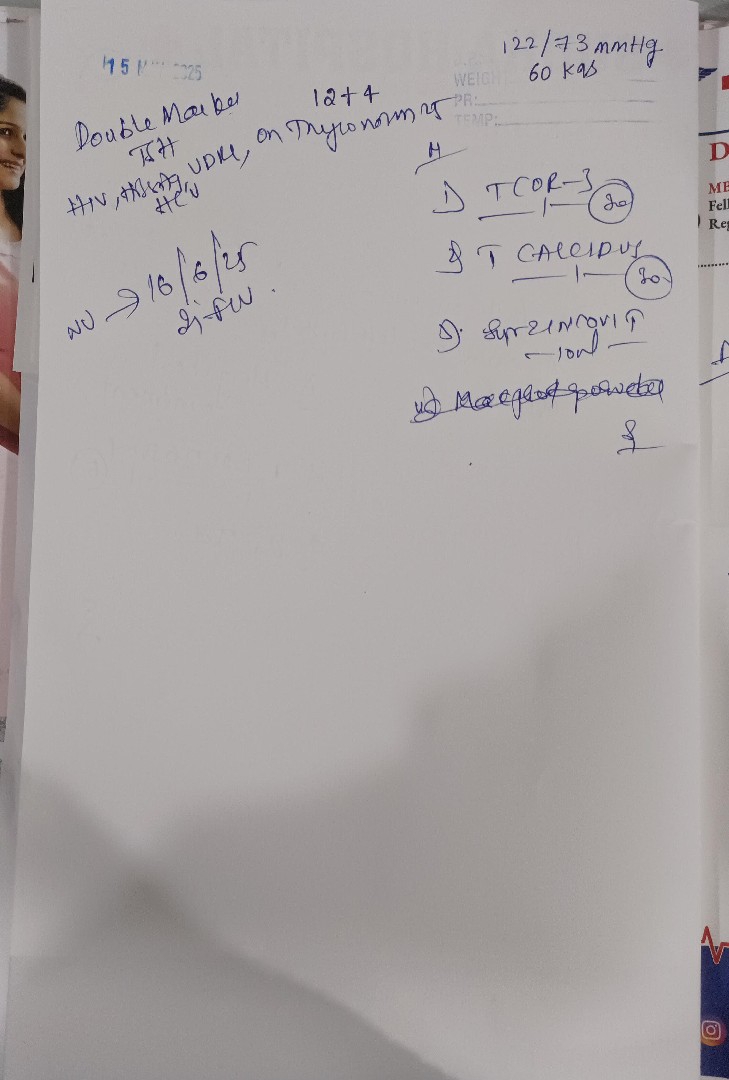 122/73 mmHg
15 2025
WEIGH 60 Kgs
PR:
TEMP:
12+4
Double Marker
TSH
HIV, HBsAg, VDRL, on Thyronorm 25
HCV
NV → 16/6/25
1) T COR-3
— 1 — 30
T CALCIDUS
— 1 — 30
3). Syp ZINCOVIT
— 10ml —
D
ME
Fell
Reg